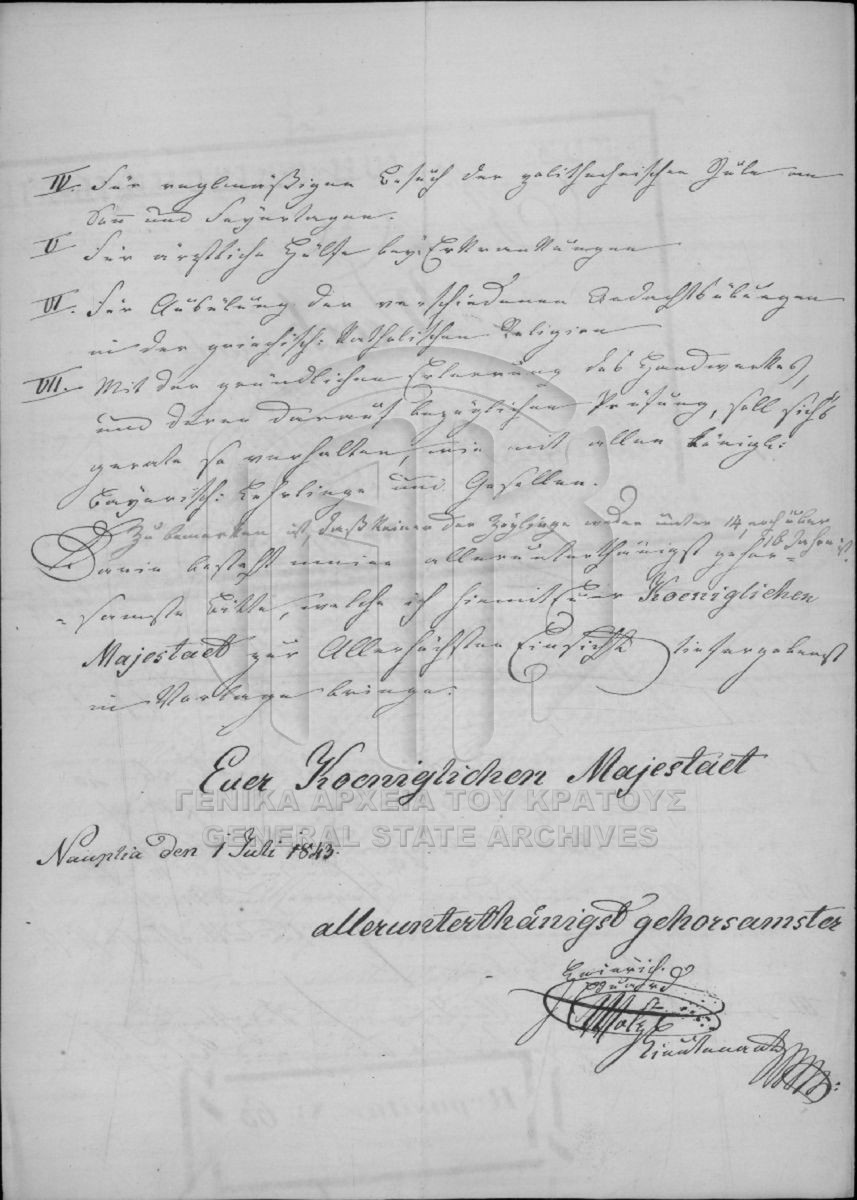 IV. Für reglmäßigen Besuch der politechnischen Schule an
Son und Feyertagen.
V Für ärztliche Hülfe bey Erkrankungen
VI. Für Ausübung der verschiedenen Andachtsübungen
in der griechisch: Katholischen Religion
VII. Mit der gründlichen Erlernung des Handwerkes,
und deren darauf bezüglichen Prüfung, soll sich's
gerate so verhalten, wie mit allen königl:
bayerisch: Lehrlinge und Gesellen.
Zu bemerken ist, daß keiner der Zöglinge weder unter 14, noch über
16 Jahre ist.
Darin besteht meine allerunterthänigst gehor=
=samste Bitte, welche ich hiemit Euer Koeniglichen
Majestaet zur Allerhöchsten Einsicht tiefergebenst
in Vorlage bringe.
Euer Koeniglichen Majestaet
ΓΕΝΙΚΑ ΑΡΧΕΙΑ ΤΟΥ ΚΡΑΤΟΥΣ
GENERAL STATE ARCHIVES
Nauplia den 1 Juli 1843.
allerunterthänigst gehorsamster
Heinrich
Lieutenant